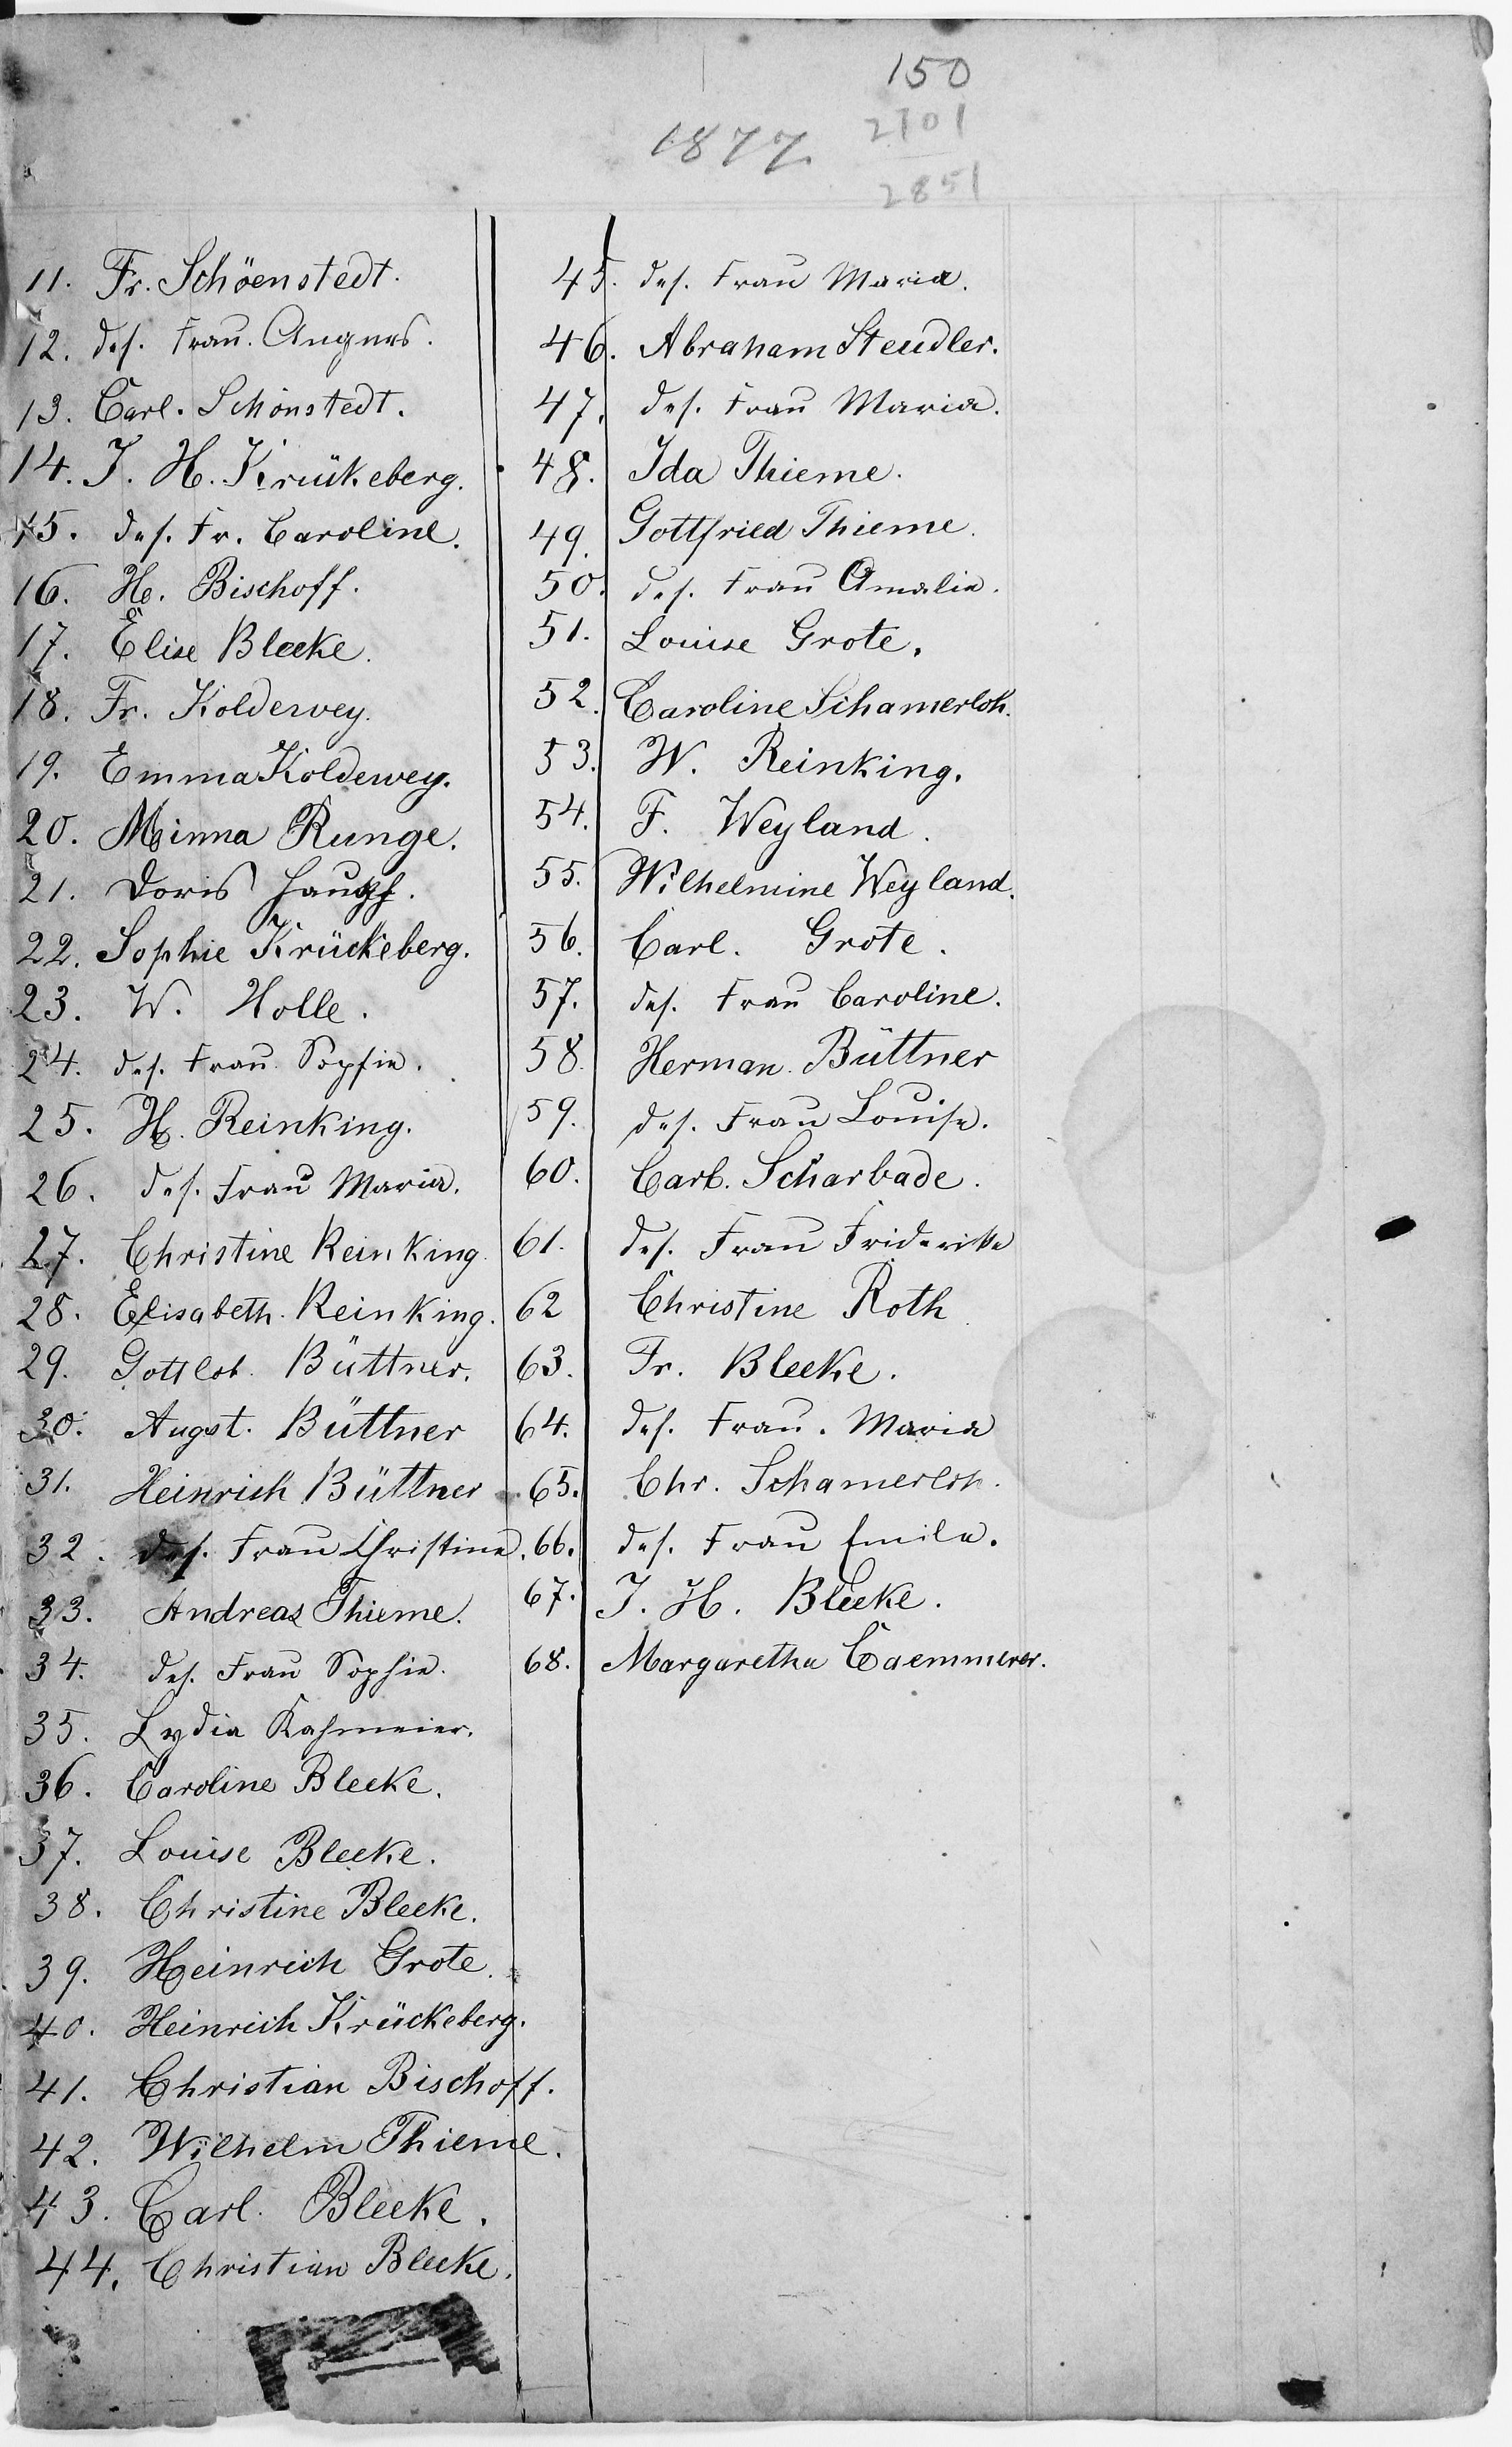 150
1877. 2701
2851
11. Fr. Schöenstedt.
12. des. Frau. Angnes.
13. Carl. Schönstedt.
14. J. H. Krükeberg.
15. des. Fr. Caroline.
16. H. Bischoff.
17. Elise Bleeke.
18. Fr. Koldewey.
19. Emma Koldewey.
20. Minna Runge.
21. Doris
22. Sophie Krückeberg.
23. W. Holle.
24. des. Frau Sophie.
25. H. Reinking.
26. des. Frau Maria.
27. Christine Reinking.
28. Elisabeth. Reinking.
29. Gottlob. Büttner.
30. Augst. Büttner
31. Heinrich Büttner
32. des. Frau Christine.
33. Andreas Thieme.
34. des. Frau Sophie.
35. Lydia Kahmeier.
36. Caroline Bleeke.
37. Louise Bleeke.
38. Christine Bleeke.
39. Heinrich Grote.
40. Heinrich Krückeberg.
41. Christian Bischoff.
42. Wilhelm Thieme.
43. Carl. Bleeke.
44. Christian Bleeke.
45. des. Frau Maria.
46. Abraham Steudler.
47. des. Frau Maria.
48. Ida Thieme.
49. Gottfried Thieme.
50. des. Frau Amalie.
51. Louise Grote.
52. Caroline Schamerloh.
53. W. Reinking.
54. F. Weyland.
55. Wilhelmine Weyland.
56. Carl. Grote.
57. des. Frau Caroline.
58. Herman. Büttner
59. des. Frau Louise.
60. Carl. Scharbade.
61. des. Frau Friderike
62 Christine Roth
63. Fr. Bleeke.
64. des. Frau. Maria
65. Chr. Schamerloh.
66. des. Frau Emile.
67. J. H. Bleeke.
68. Margaretha Caemmerer.